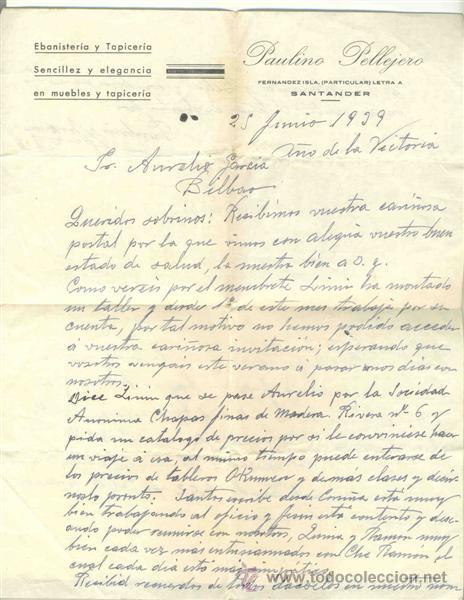 Ebanistería y Tapicería
Sencillez y elegancia
en muebles y tapicería
Paulino Pellejero
FERNANDEZ ISLA, (PARTICULAR) LETRA A
SANTANDER
25 Junio 1939
Año de la Victoria
Sr. Aurelio García
Bilbao
Queridos sobrinos: Recibimos vuestra cariñosa
postal por la que vimos con alegria vuestro buen
estado de salud, la nuestra bien a D. g.
Como vereis por el menbrete Linin ha montado
un taller y desde 1º de este mes trabaja por su
cuenta, por tal motivo no hemos podido acceder
á vuestra cariñosa invitación; esperando que
vosotros vengais este verano á pasar unos dias con
nosotros.
Dice Linin que se pase Aurelio por la Sociedad
Anonima Chapas finas de Madera. Rivera nº 6 y
pida un catalogo de precios por si le conviniese hacer
un viaje á esa, al mismo tiempo puede enterarse de
los precios de tableros Okumen y demás clases y
pronto. Santos escribe desde Coruña está muy
bien trabajando al oficio y está contento y
poder reunirse con nosotros, y Ramon muy
bien cada vez mas entusiasmados con Che Ramón el
cual cada dia está mas simpático
Recibid recuerdos de todos
todocoleccion.net